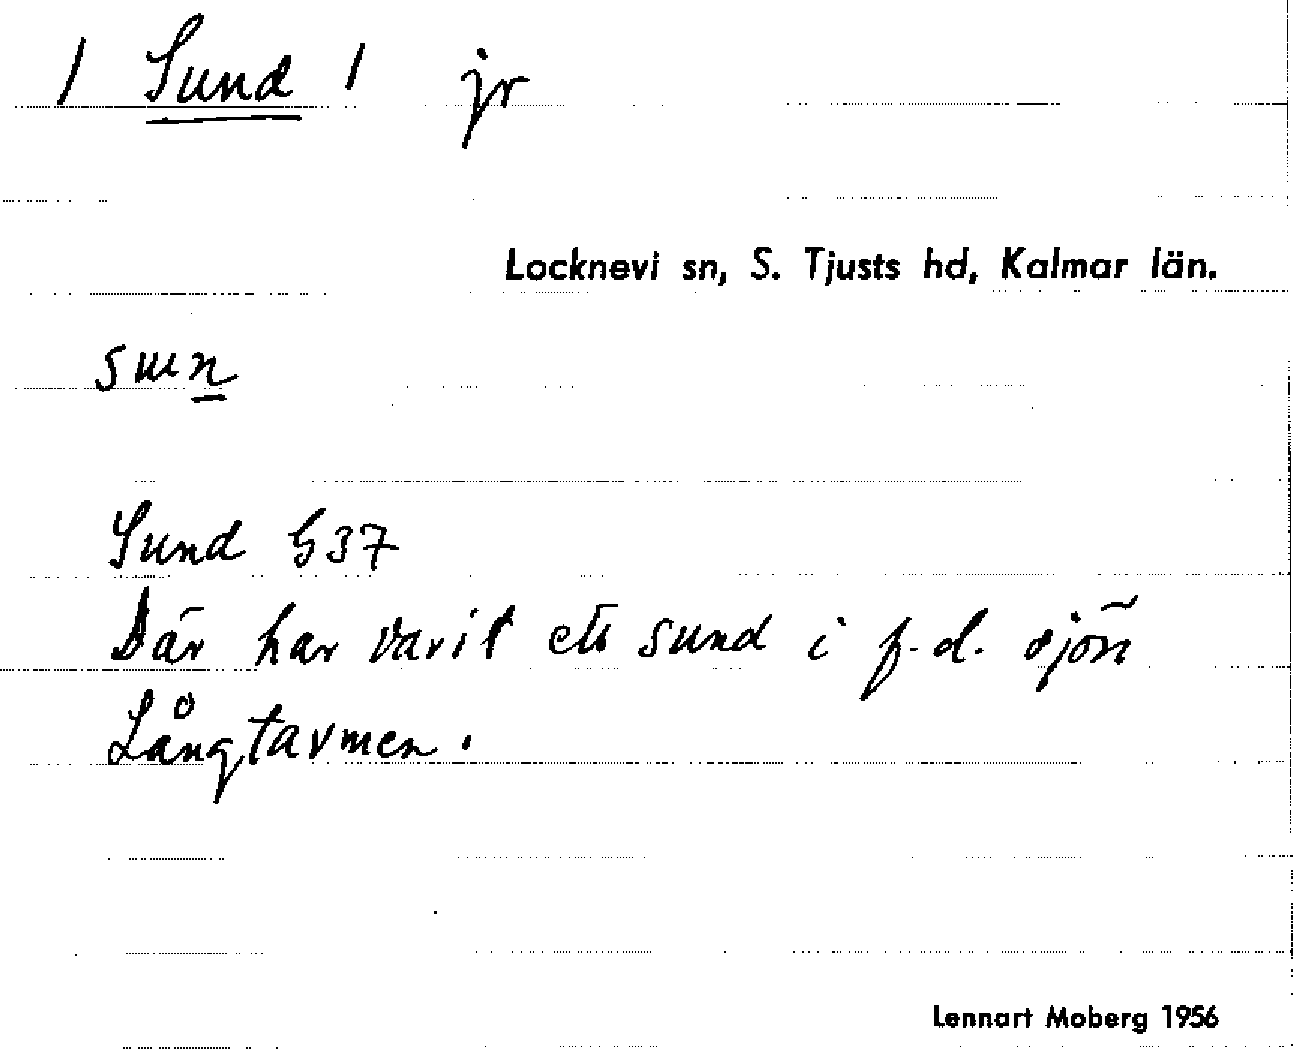 / Sund / jr
Locknevi sn, S. Tjusts hd, Kalmar län.
Sund G37
Där har varit ett sund i f.d. sjön
Långtavmen.
Lennart Moberg 1956